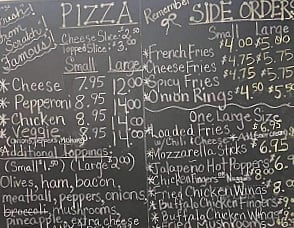 from
Scratch!
Famous!
PIZZA
Cheese Slice
Topped Slice
Small Large
*Cheese 7.95 12.00
*Pepperoni 8.95 14.00
*Chicken 8.95 14.00
*Veggie 8.95 14.00
Additional Toppings:
(Small $1.50) (Large $2.00)
Olives, ham, bacon,
meatball, peppers, onions,
broccoli, mushrooms,
pineapple, extra cheese
Remember
SIDE ORDERS
Small Large
*French Fries $4.00 $5.00
*Cheese Fries $4.75 $5.75
*Spicy Fries $4.75 $5.75
*Onion Rings $4.50 $5.50
One Large Size
*Loaded Fries $6.95
w/Chili & Cheese
*Mozzarella Sticks 6.95
*Jalapeño Hot Poppers
*Chicken Fingers
*Fried Chicken Wings 8.
*Buffalo Chicken Fingers
*Buffalo Chicken Wings
*Fried Mushrooms